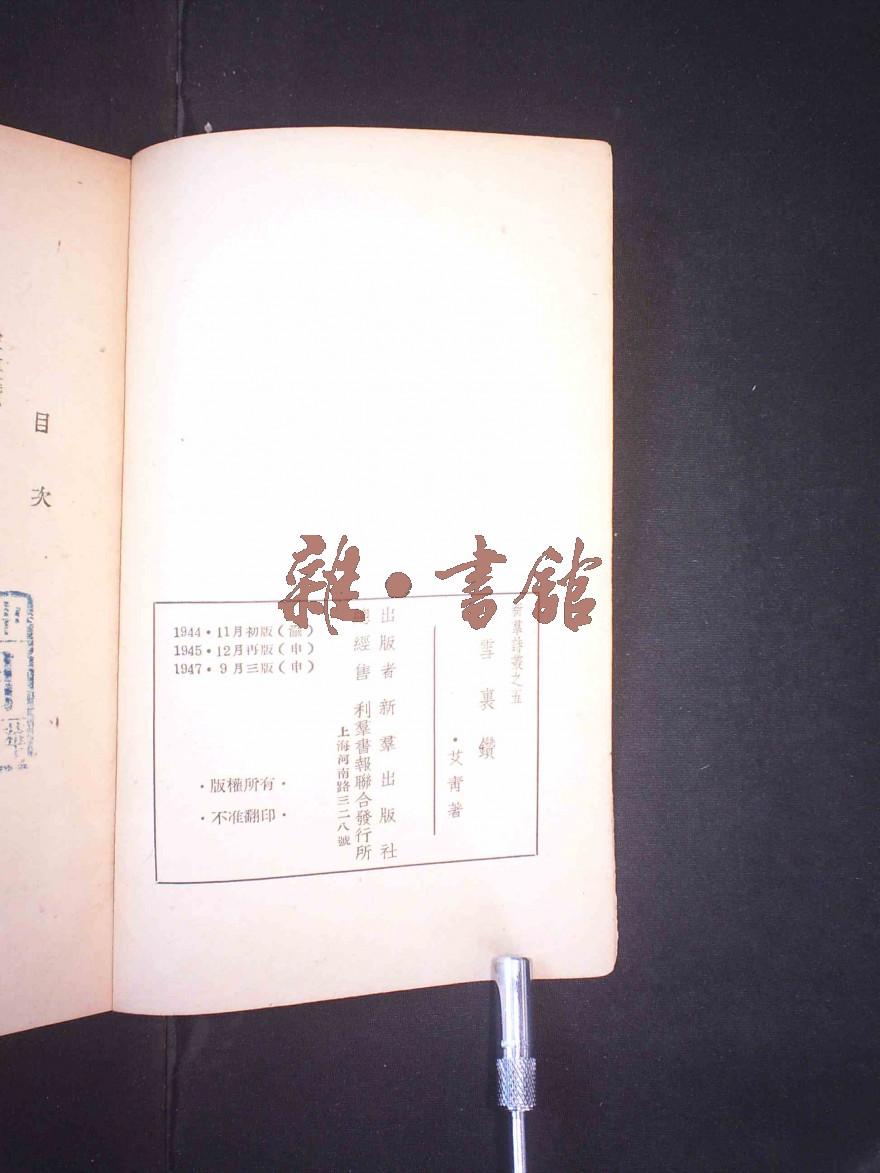 雜·書館
新羣詩叢之五
雪裏鑽
·艾青著
出版者 新羣出版社
總經售 利羣書報聯合發行所
上海河南路三二八號
1944·11月初版(渝)
1945·12月再版(申)
1947·9月三版(申)
·版權所有·
·不准翻印·
目次